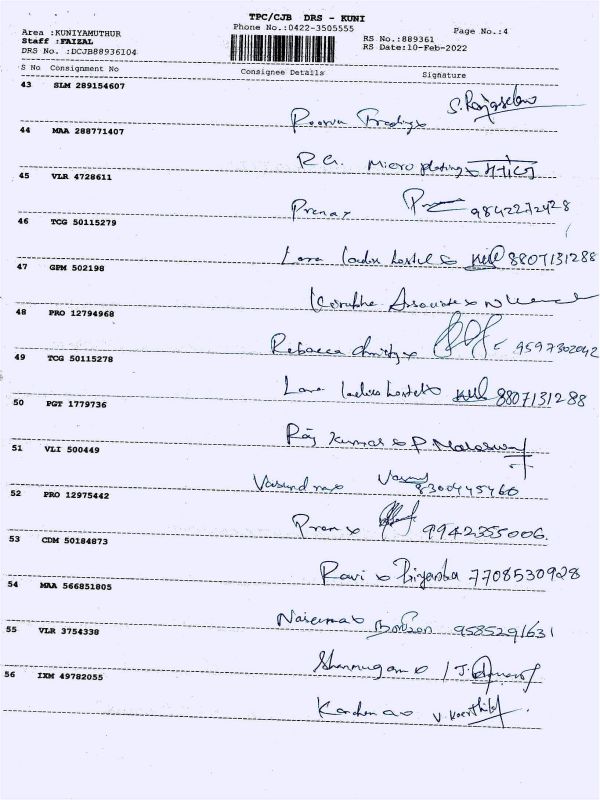 TPC/CJB DRS - KUNI
Phone No.:0422-3505555
Area :KUNIYAMUTHUR
Staff :FAIZAL
DRS No. :DCJB88936104
RS No.:889361
RS Date:10-Feb-2022
Page No.:4
S No Consignment No Consignee Details Signature
43 SLM 289154607
Poorva Trading S. Rajaselan
44 MAA 288771407
R.G. Micro plating
45 VLR 4728611
Prena 9842272428
46 TCG 50115279
Lara ladies hostel 8807131288
47 GPM 502198
Associate
48 PRO 12794968
Rebecca 9597302042
49 TCG 50115278
Lara ladies hostel 8807131288
50 PGT 1779736
Raj Kumar P
51 VLI 500449
Vasundra 8300445460
52 PRO 12975442
Prem 9942355006.
53 CDM 50184873
Ravi Priyanka 7708530928
54 MAA 566851805
Naseema 9585291631
55 VLR 3754338
Shanmugam J.
56 IXM 49782055
V. Keerthi